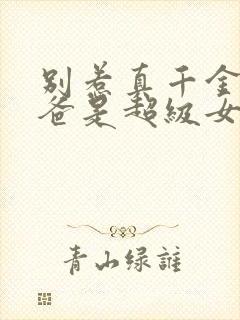 别惹真千金
爸是超级女
青山绿谁